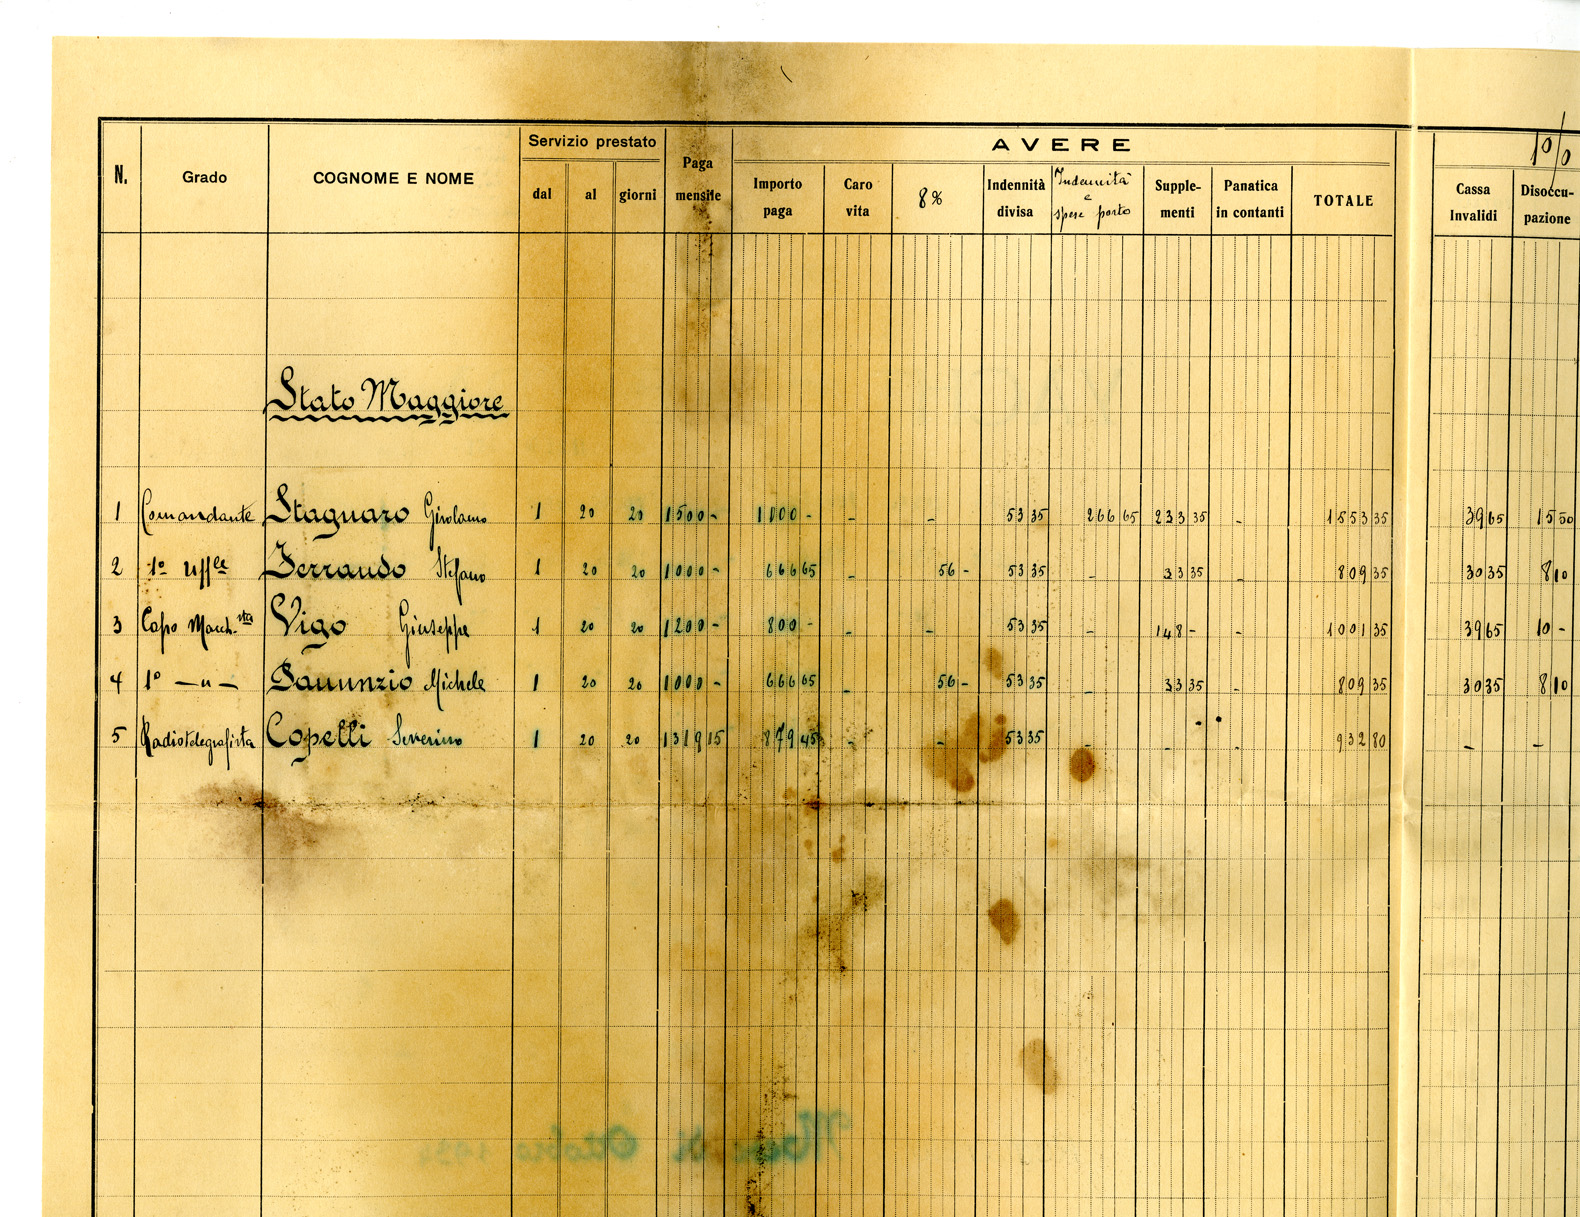 AVERE 1%
N. Grado COGNOME E NOME Servizio prestato Paga mensile Importo paga Caro vita 8% Indennità divisa Indennità e spese porto Supplementi Panatica in contanti TOTALE Cassa Invalidi Disoccupazione
dal al giorni
Stato Maggiore
1 Comandante Stagnaro Girolamo 1 20 20 1500 - 1000 - - - 53 35 266 65 233 35 - 1553 35 39 65 15 50
2 1° Uff.le Ferrando Stefano 1 20 20 1000 - 666 65 - 56 - 53 35 - 33 35 - 809 35 30 35 8 10
3 Capo Macch.sta Vigo Giuseppe 1 20 20 1200 - 800 - - - 53 35 - 148 - - 1001 35 39 65 10 -
4 1° - " - Michele 1 20 20 1000 - 666 65 - 56 - 53 35 - 33 35 - 809 35 30 35 8 10
5 Radiotelegrafista Copelli Severino 1 20 20 1319 15 879 45 - - 53 35 - - - 932 80 - -
Mese di Ottobre